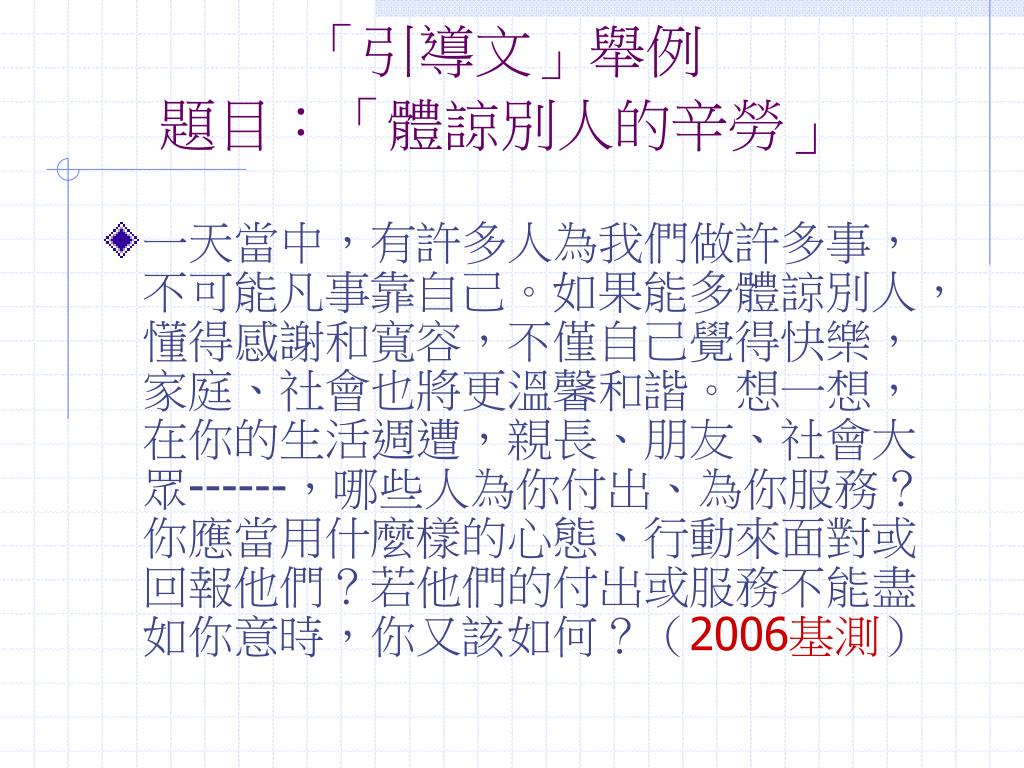 「引導文」舉例
題目：「體諒別人的辛勞」
一天當中，有許多人為我們做許多事，
不可能凡事靠自己。如果能多體諒別人，
懂得感謝和寬容，不僅自己覺得快樂，
家庭、社會也將更溫馨和諧。想一想，
在你的生活週遭，親長、朋友、社會大
眾------，哪些人為你付出、為你服務？
你應當用什麼樣的心態、行動來面對或
回報他們？若他們的付出或服務不能盡
如你意時，你又該如何？（2006基測）